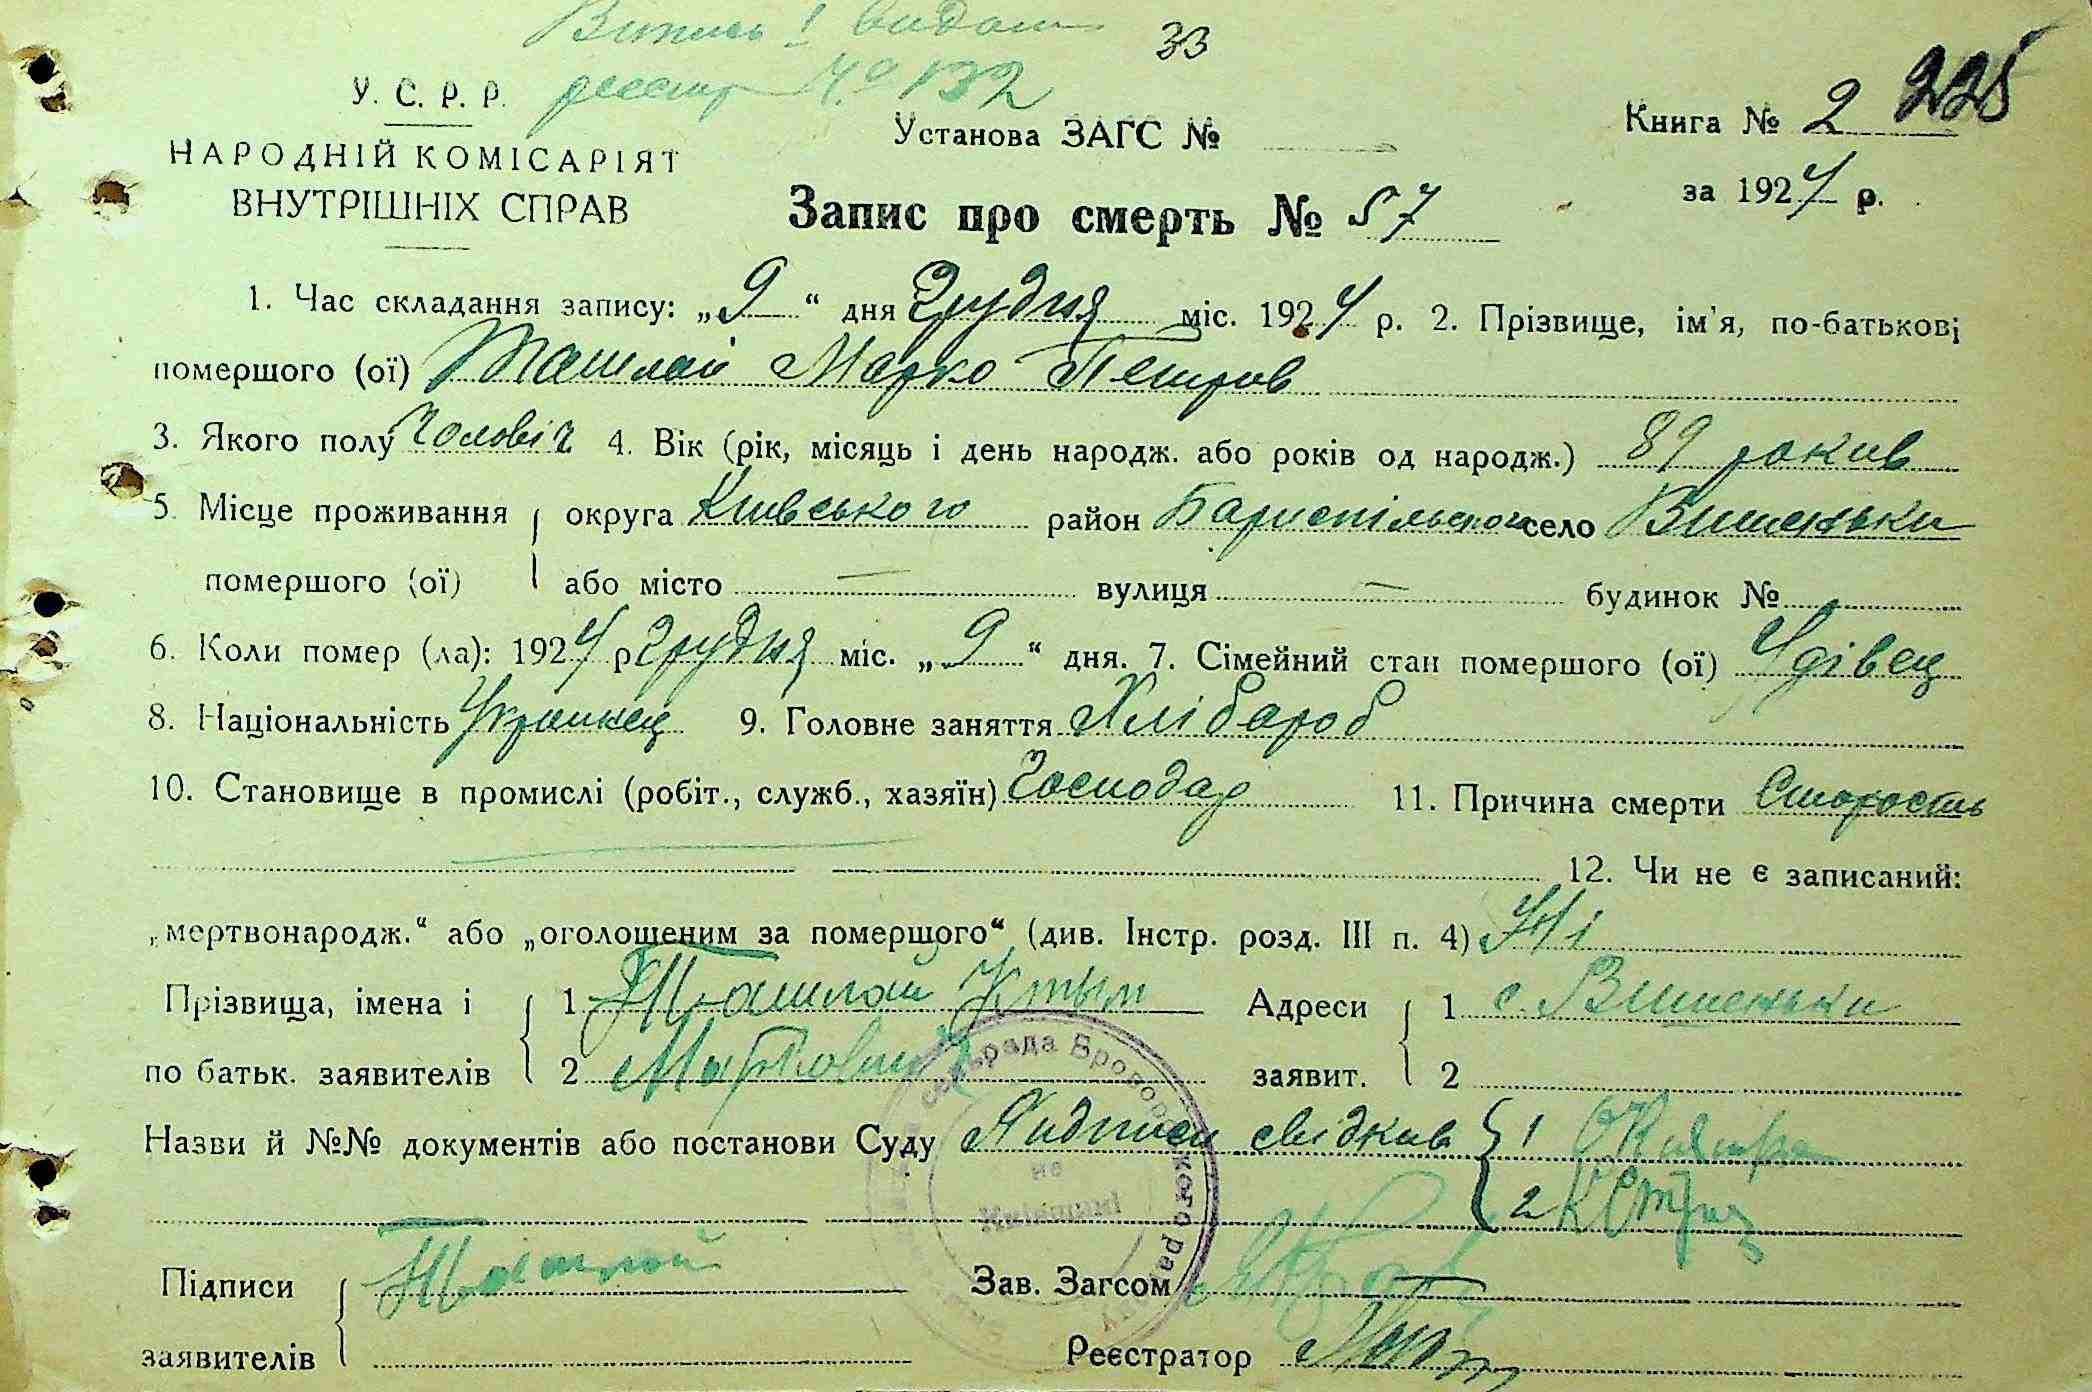 Випись І видана
33
реєстр № 132
225
У. С. Р. Р.
НАРОДНІЙ КОМІСАРІЯТ
ВНУТРІШНІХ СПРАВ
Установа ЗАГС №
Книга № 2
за 1924 р.
Запис про смерть № 57
1. Час складання запису: „9“ дня Грудня міс. 1924 р. 2. Прізвище, ім'я, по-батькові
помершого (ої) Ташлай Марко Петров
3. Якого полу Чоловіч 4. Вік (рік, місяць і день народж. або років од народж.) 89 рокив
5. Місце проживання округа Київського район Бариспільского село Вишеньки
помершого (ої) або місто — вулиця — будинок №
6. Коли помер (ла): 1924 р Грудня міс. „9“ дня. 7. Сімейний стан помершого (ої) Удівец
8. Національність Украинец 9. Головне заняття Хлібароб
10. Становище в промислі (робіт., служб., хазяїн) Господар 11. Причина смерти Старость
12. Чи не є записаний:
„мертвонародж.“ або „оголошеним за помершого“ (див. Інстр. розд. III п. 4) Ні
Прізвища, імена і 1 Ташлай Адреси 1 с. Вишеньки
по батьк. заявителів 2 Маркович заявит. 2
Назви й №№ документів або постанови Суду Пидписи свідкив 1
2
Підписи Ташлай Зав. Загсом
заявителів Реєстратор